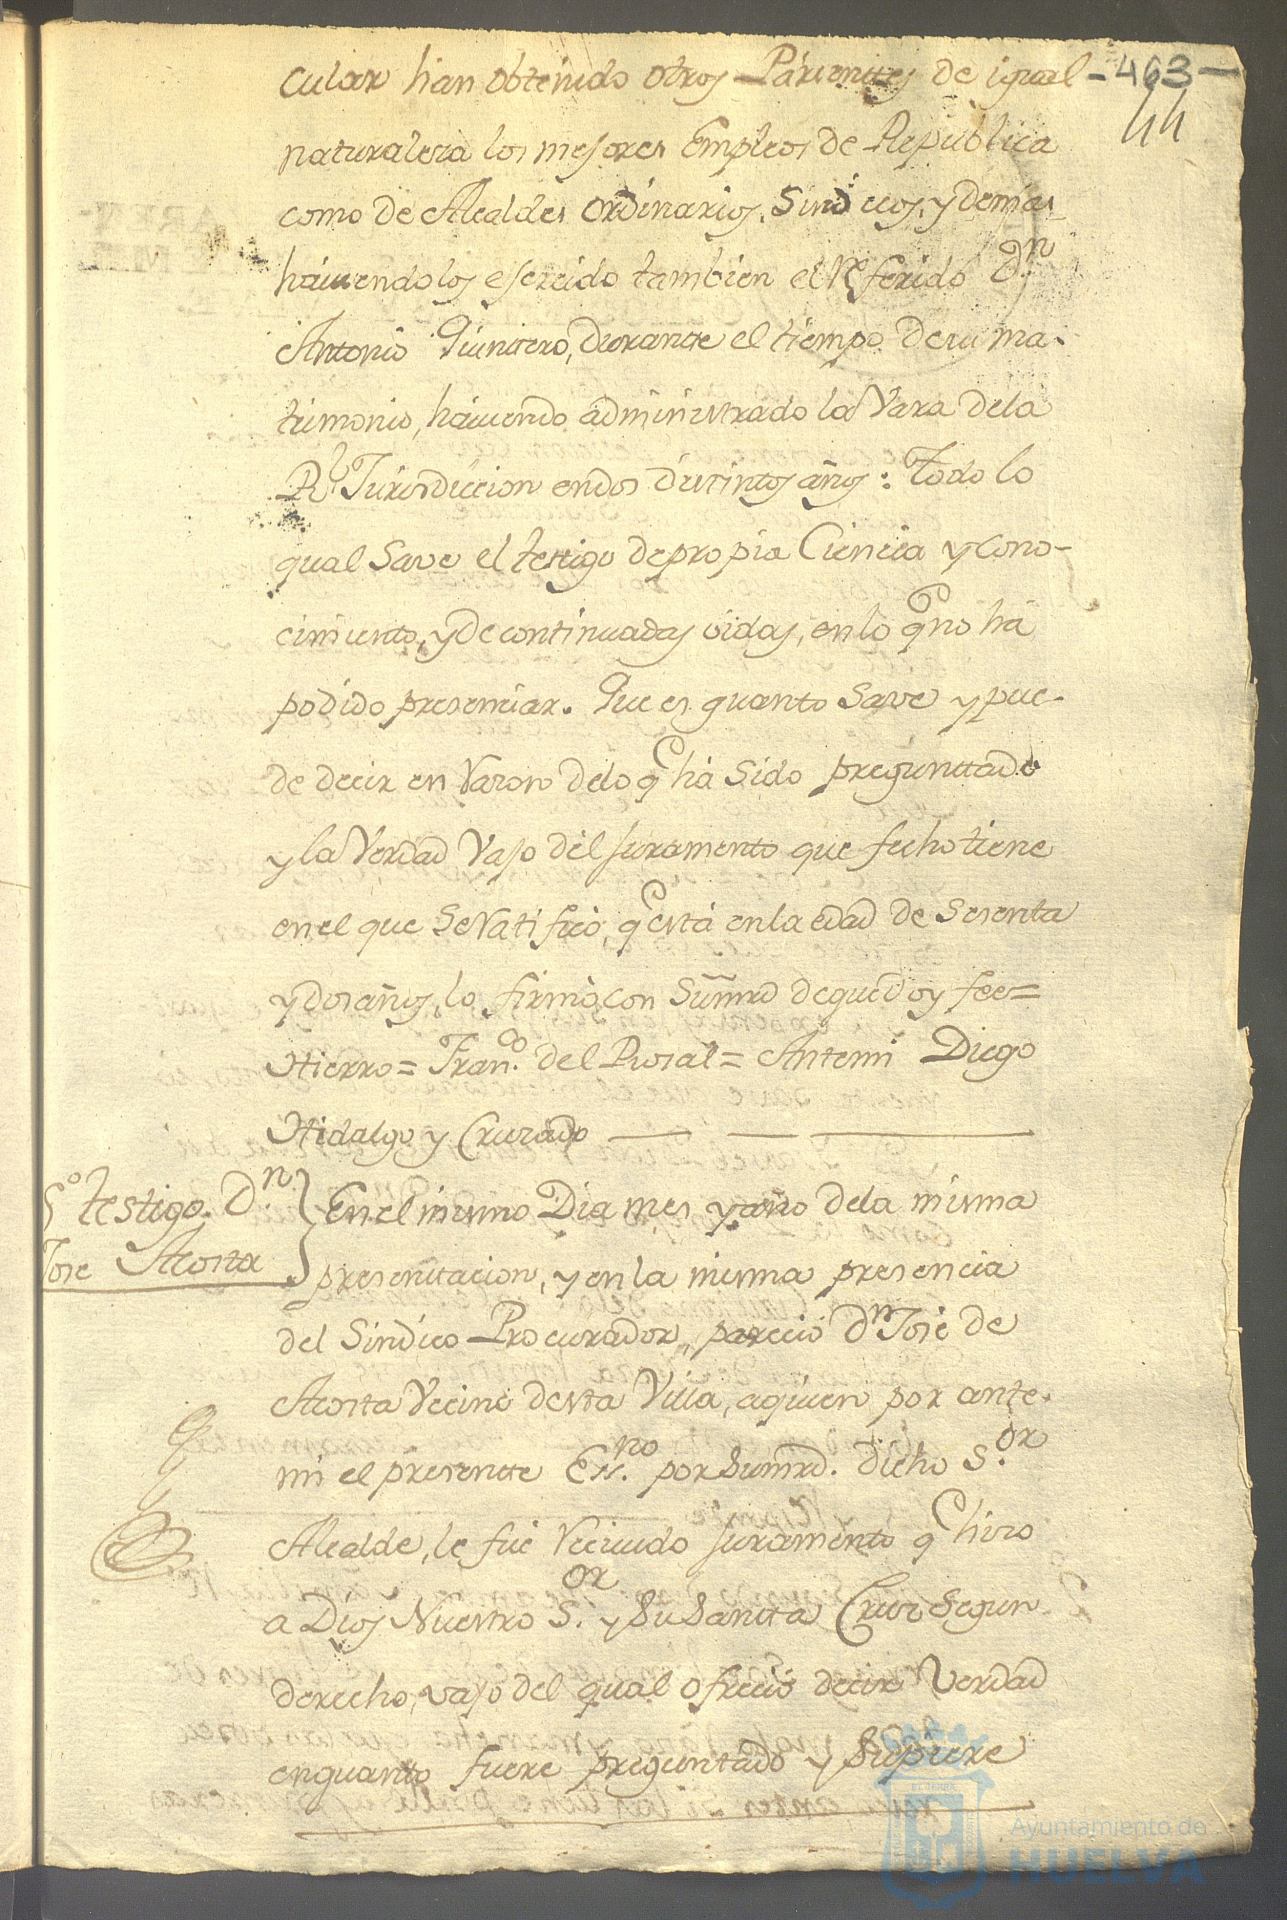 cular han obtenido otros Parientes de igual
-463-
44
naturaleza los mejores Empleos de Republica
como de Alcaldes ordinarios, Sindicos, y demas
haviendolos esercido tambien el Referido Dn.
Antonio Quintero, durante el tiempo de su ma-
trimonio, haviendo administrado la Vara dela
Rl. Jurisdiccion en dos distintos años: Todo lo
qual Save el testigo de propia Ciencia y cono-
cimiento, y de continuadas oidas, en lo q no há
podido presenciar. Que es quanto Save y pue-
de decir en Razon delo q há sido preguntado
y la Verdad Vajo del juramento que fecho tiene
en el que Se Ratificó, q está en la edad de Sesenta
y dos años, lo firmó con Sumrd de que doy fee=
Hierro= Franco. del Rosal= Antemi Diego
Hidalgo y Cruzado
5o testigo. Dn.
Jose Acosta
En el mismo Dia mes y año dela misma
presentacion, y en la misma presencia
del Sindico Procurador, parecio Dn Josè de
Acosta Vecino desta Villa, a quien por ante-
mi el presente Essno. por Sumrd. dicho Sor.
Alcalde, le fue Recivido juramento q hizo
a Dios Nuestro Sor. y Su Santa Cruz Segun
derecho, vajo del qual ofreció decir Verdad
en quanto fuere preguntado y Supiere
Ayuntamiento de
HUELVA